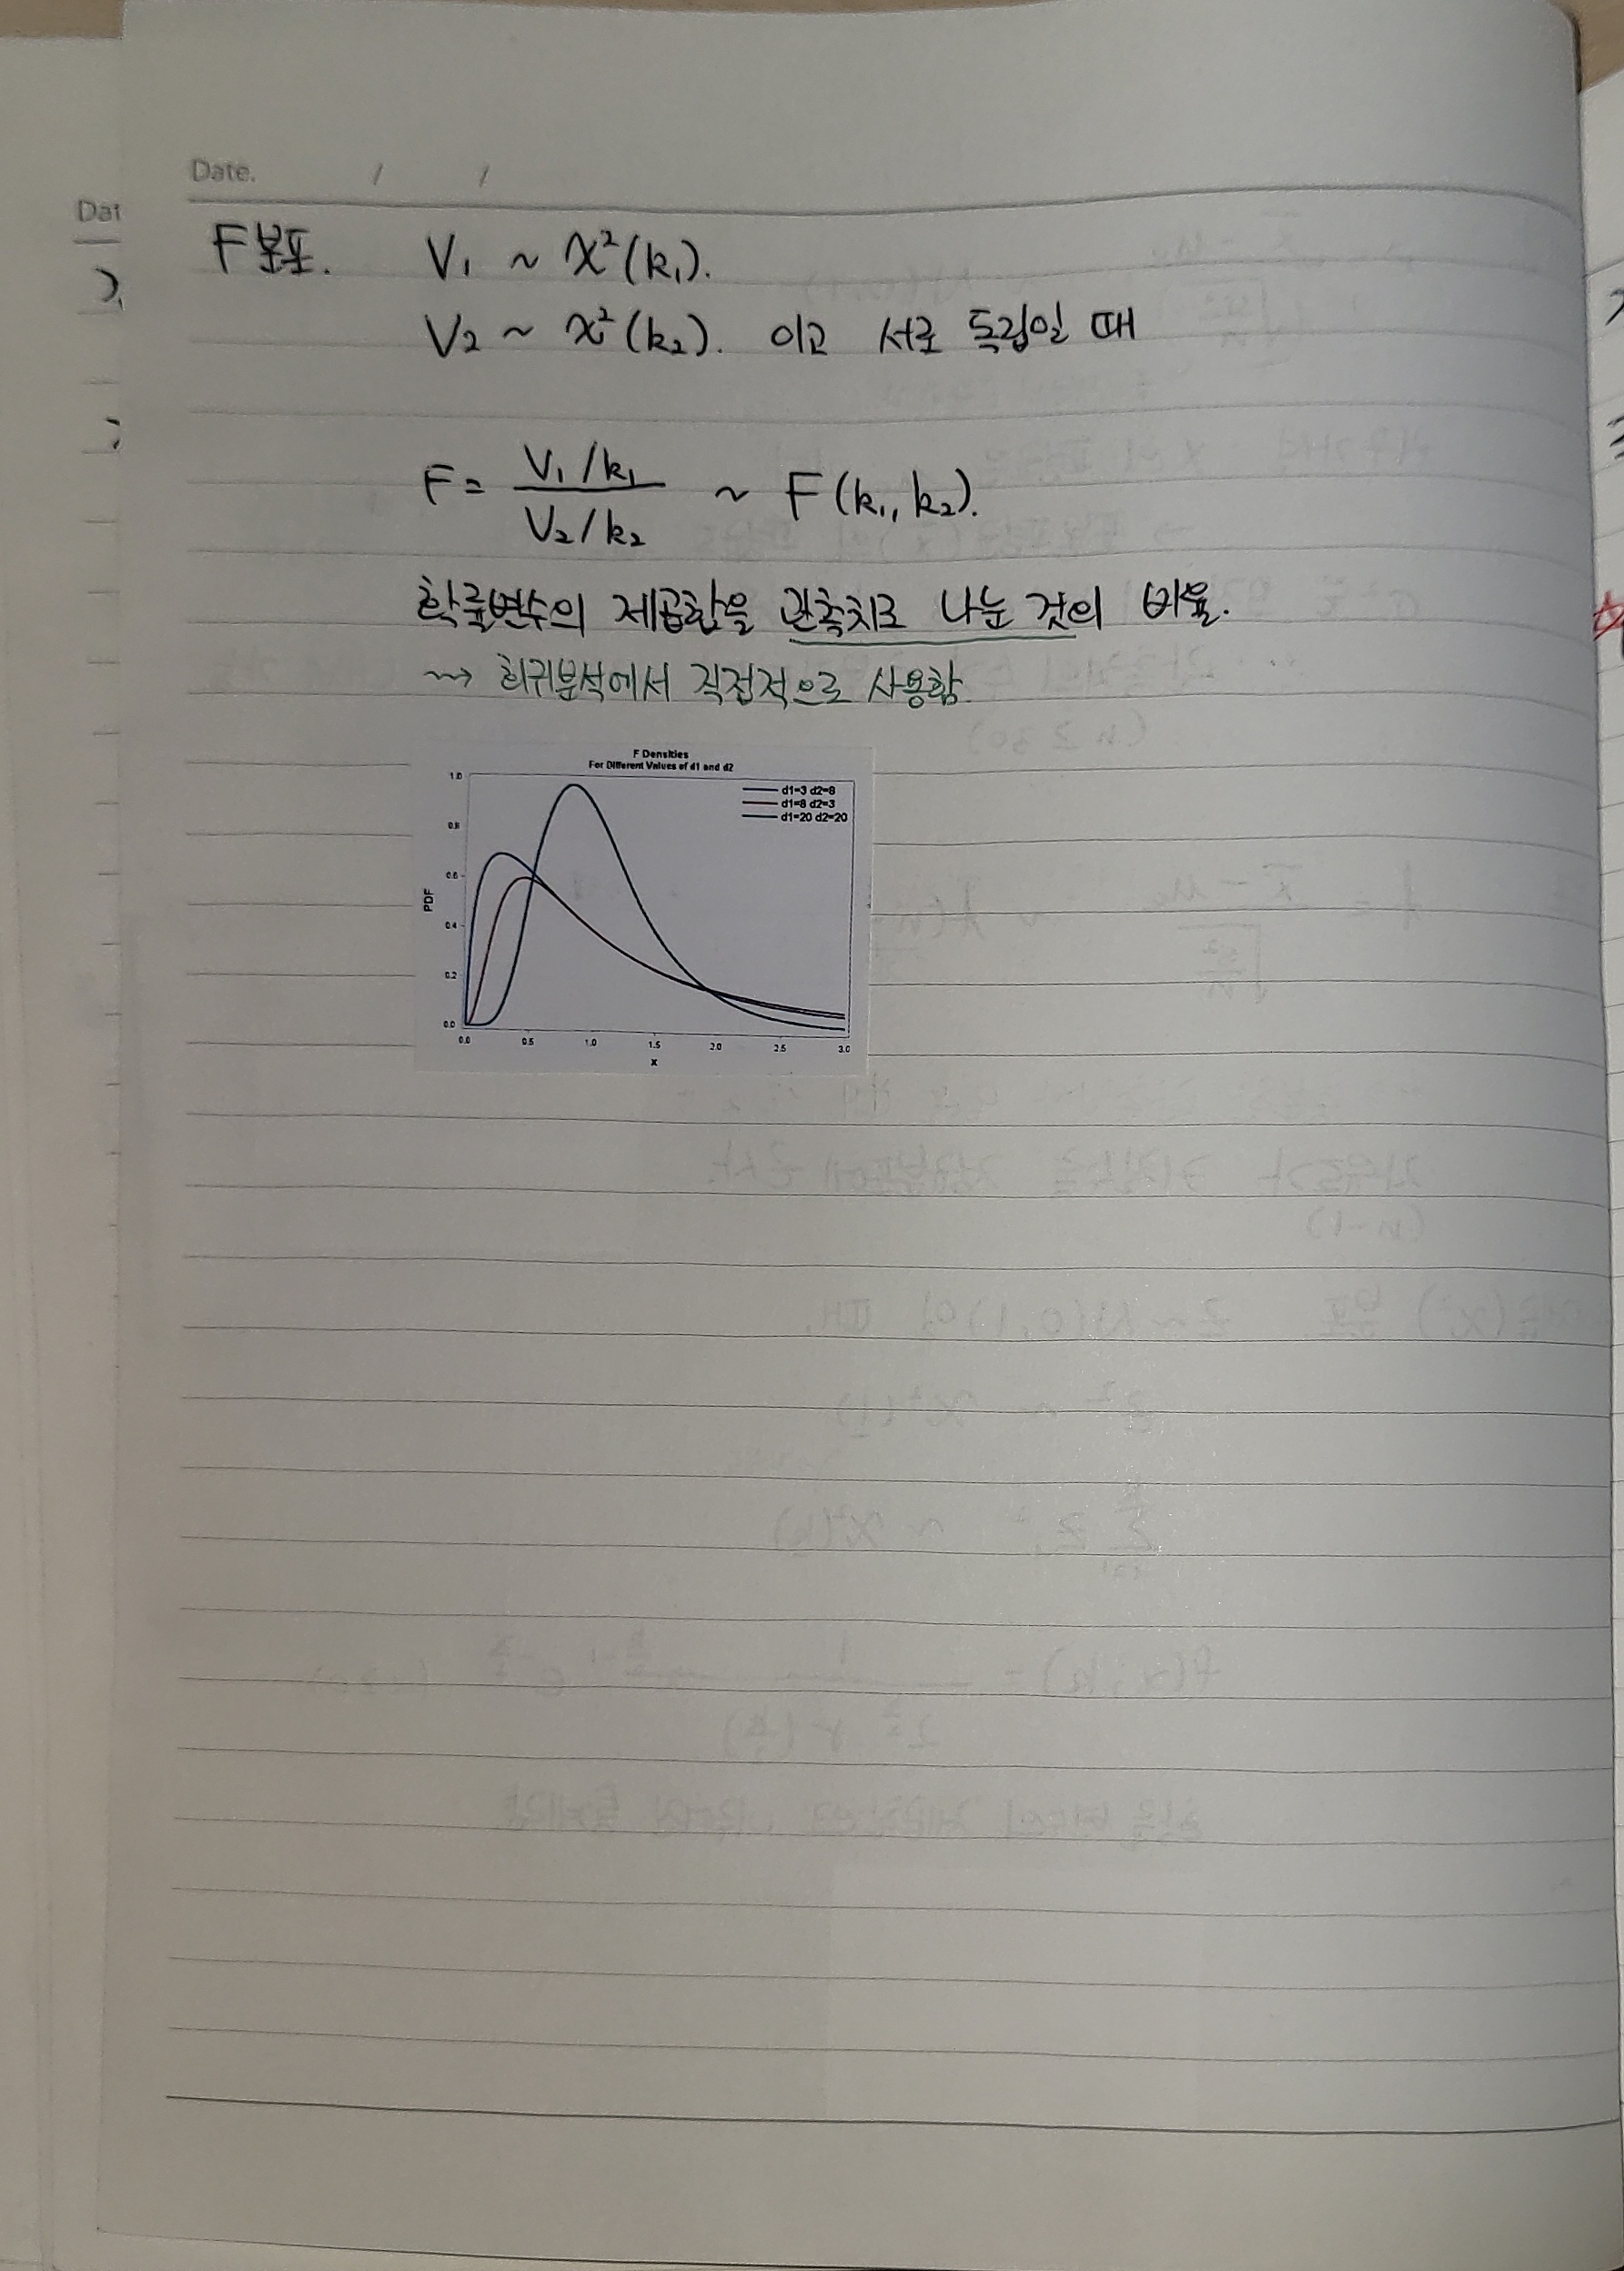 Date. / /
Dat
F분포. V₁ ~ χ²(k₁).
V₂ ~ χ²(k₂). 이고 서로 독립일 때
F = (V₁/k₁)/(V₂/k₂) ~ F(k₁, k₂).
확률변수의 제곱합을 관측치로 나눈 것의 비율.
⇝ 회귀분석에서 직접적으로 사용함.
F Densities
For Different Values of d1 and d2
d1=3 d2=8
d1=8 d2=3
d1=20 d2=20
PDF
1.0
0.8
0.6
0.4
0.2
0.0
0.0 0.5 1.0 1.5 2.0 2.5 3.0
x